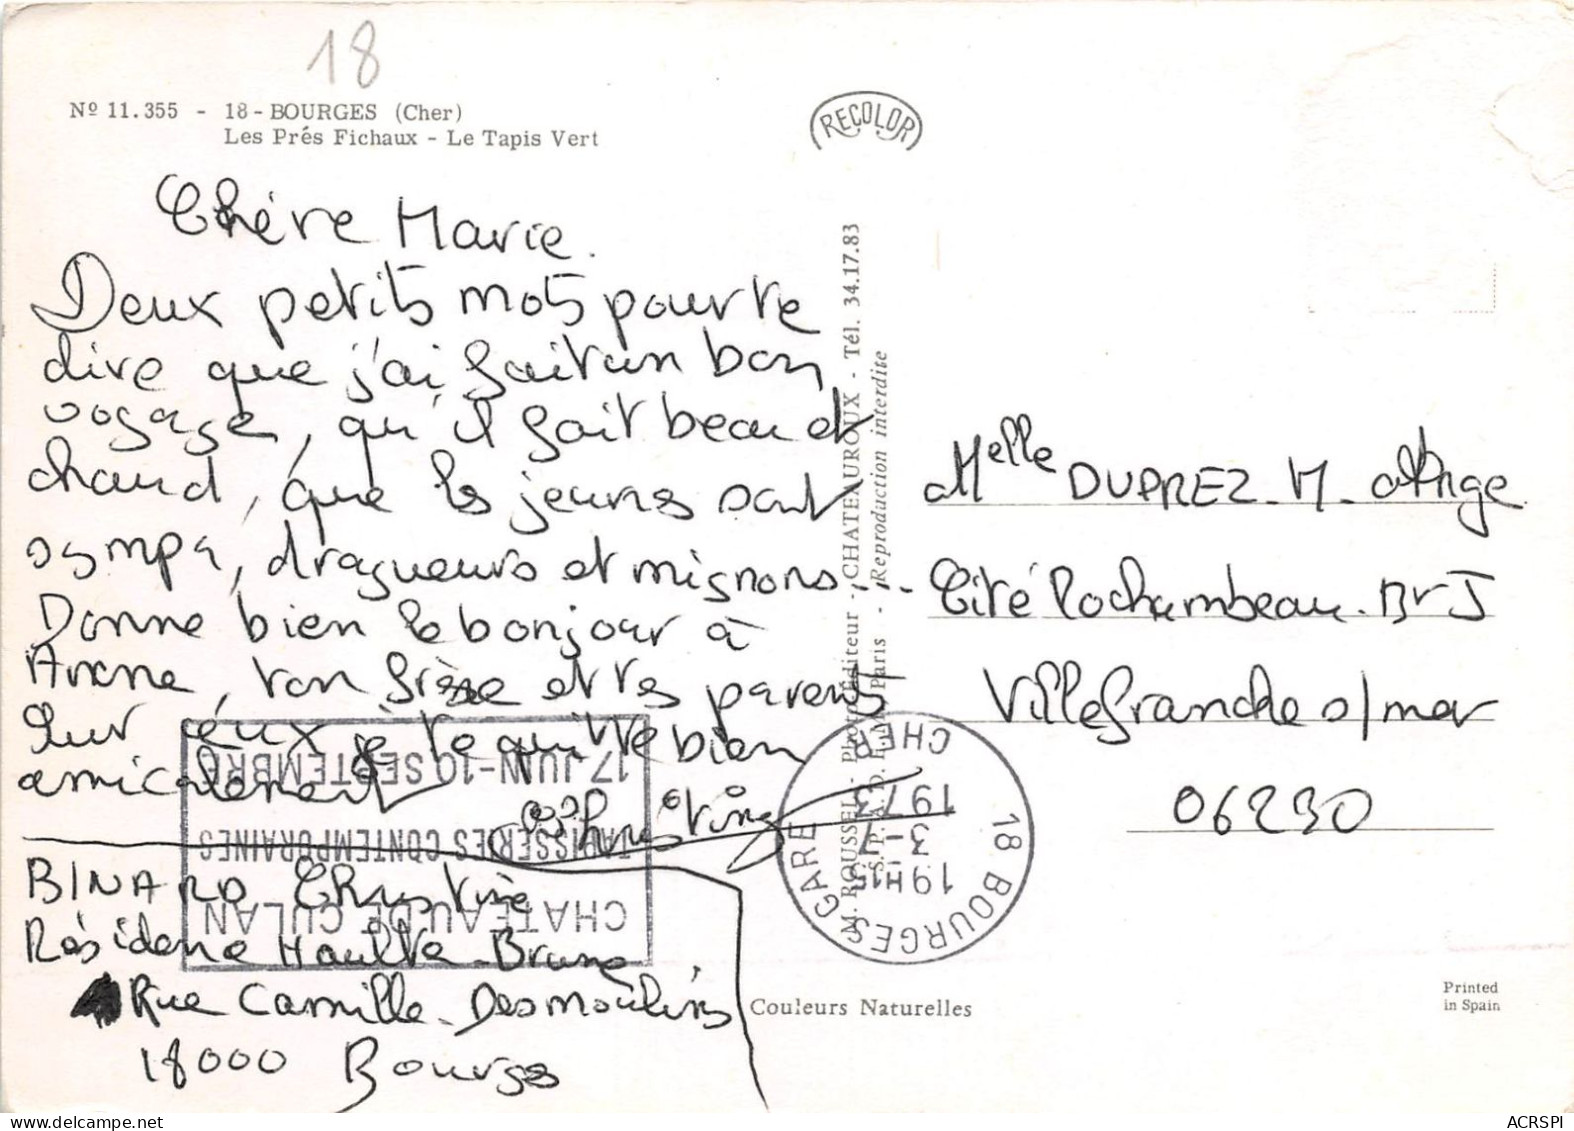 18
Nº 11.355 - 18 - BOURGES (Cher)
Les Prés Fichaux - Le Tapis Vert
RECOLOR
Chère Marie.
Deux petits mots pour te
dire que j'ai fait un bon
voyage, qu'il fait beau et
chaud, que les jeunes sont
sympa, dragueurs et mignons...
Donne bien le bonjour à
ton frère et tes parents
Sur ceux je te quitte bien
amicalement
Christine
BINARD Christine
Résidence Haulte-Brune
Rue Camille-Desmoulins
18000 Bourges
M. ROUSSEL - Photo-Éditeur - CHATEAUROUX - Tél. 34.17.83
Paris - Reproduction interdite
Melle DUPREZ-M-Ange
Cité Rochambeau-Bt J
Villefranche s/mer
06230
CHATEAU DE CULAN
TAPISSERIES CONTEMPORAINES
17 JUIN-10 SEPTEMBRE
18 BOURGES GARE
19H15
3-7
1973
CHER
Couleurs Naturelles
Printed
in Spain
ACRSPI